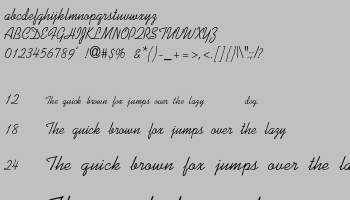 abcdefghijklmnopqrstuvwxyz
ABCDEFGHIJKLMNOPQRSTUVWXYZ
0123456789' !@#$% &*()-_+=>,<.[]{}|\":;/?
12 The quick brown fox jumps over the lazy dog.
18 The quick brown fox jumps over the lazy
24 The quick brown fox jumps over the la